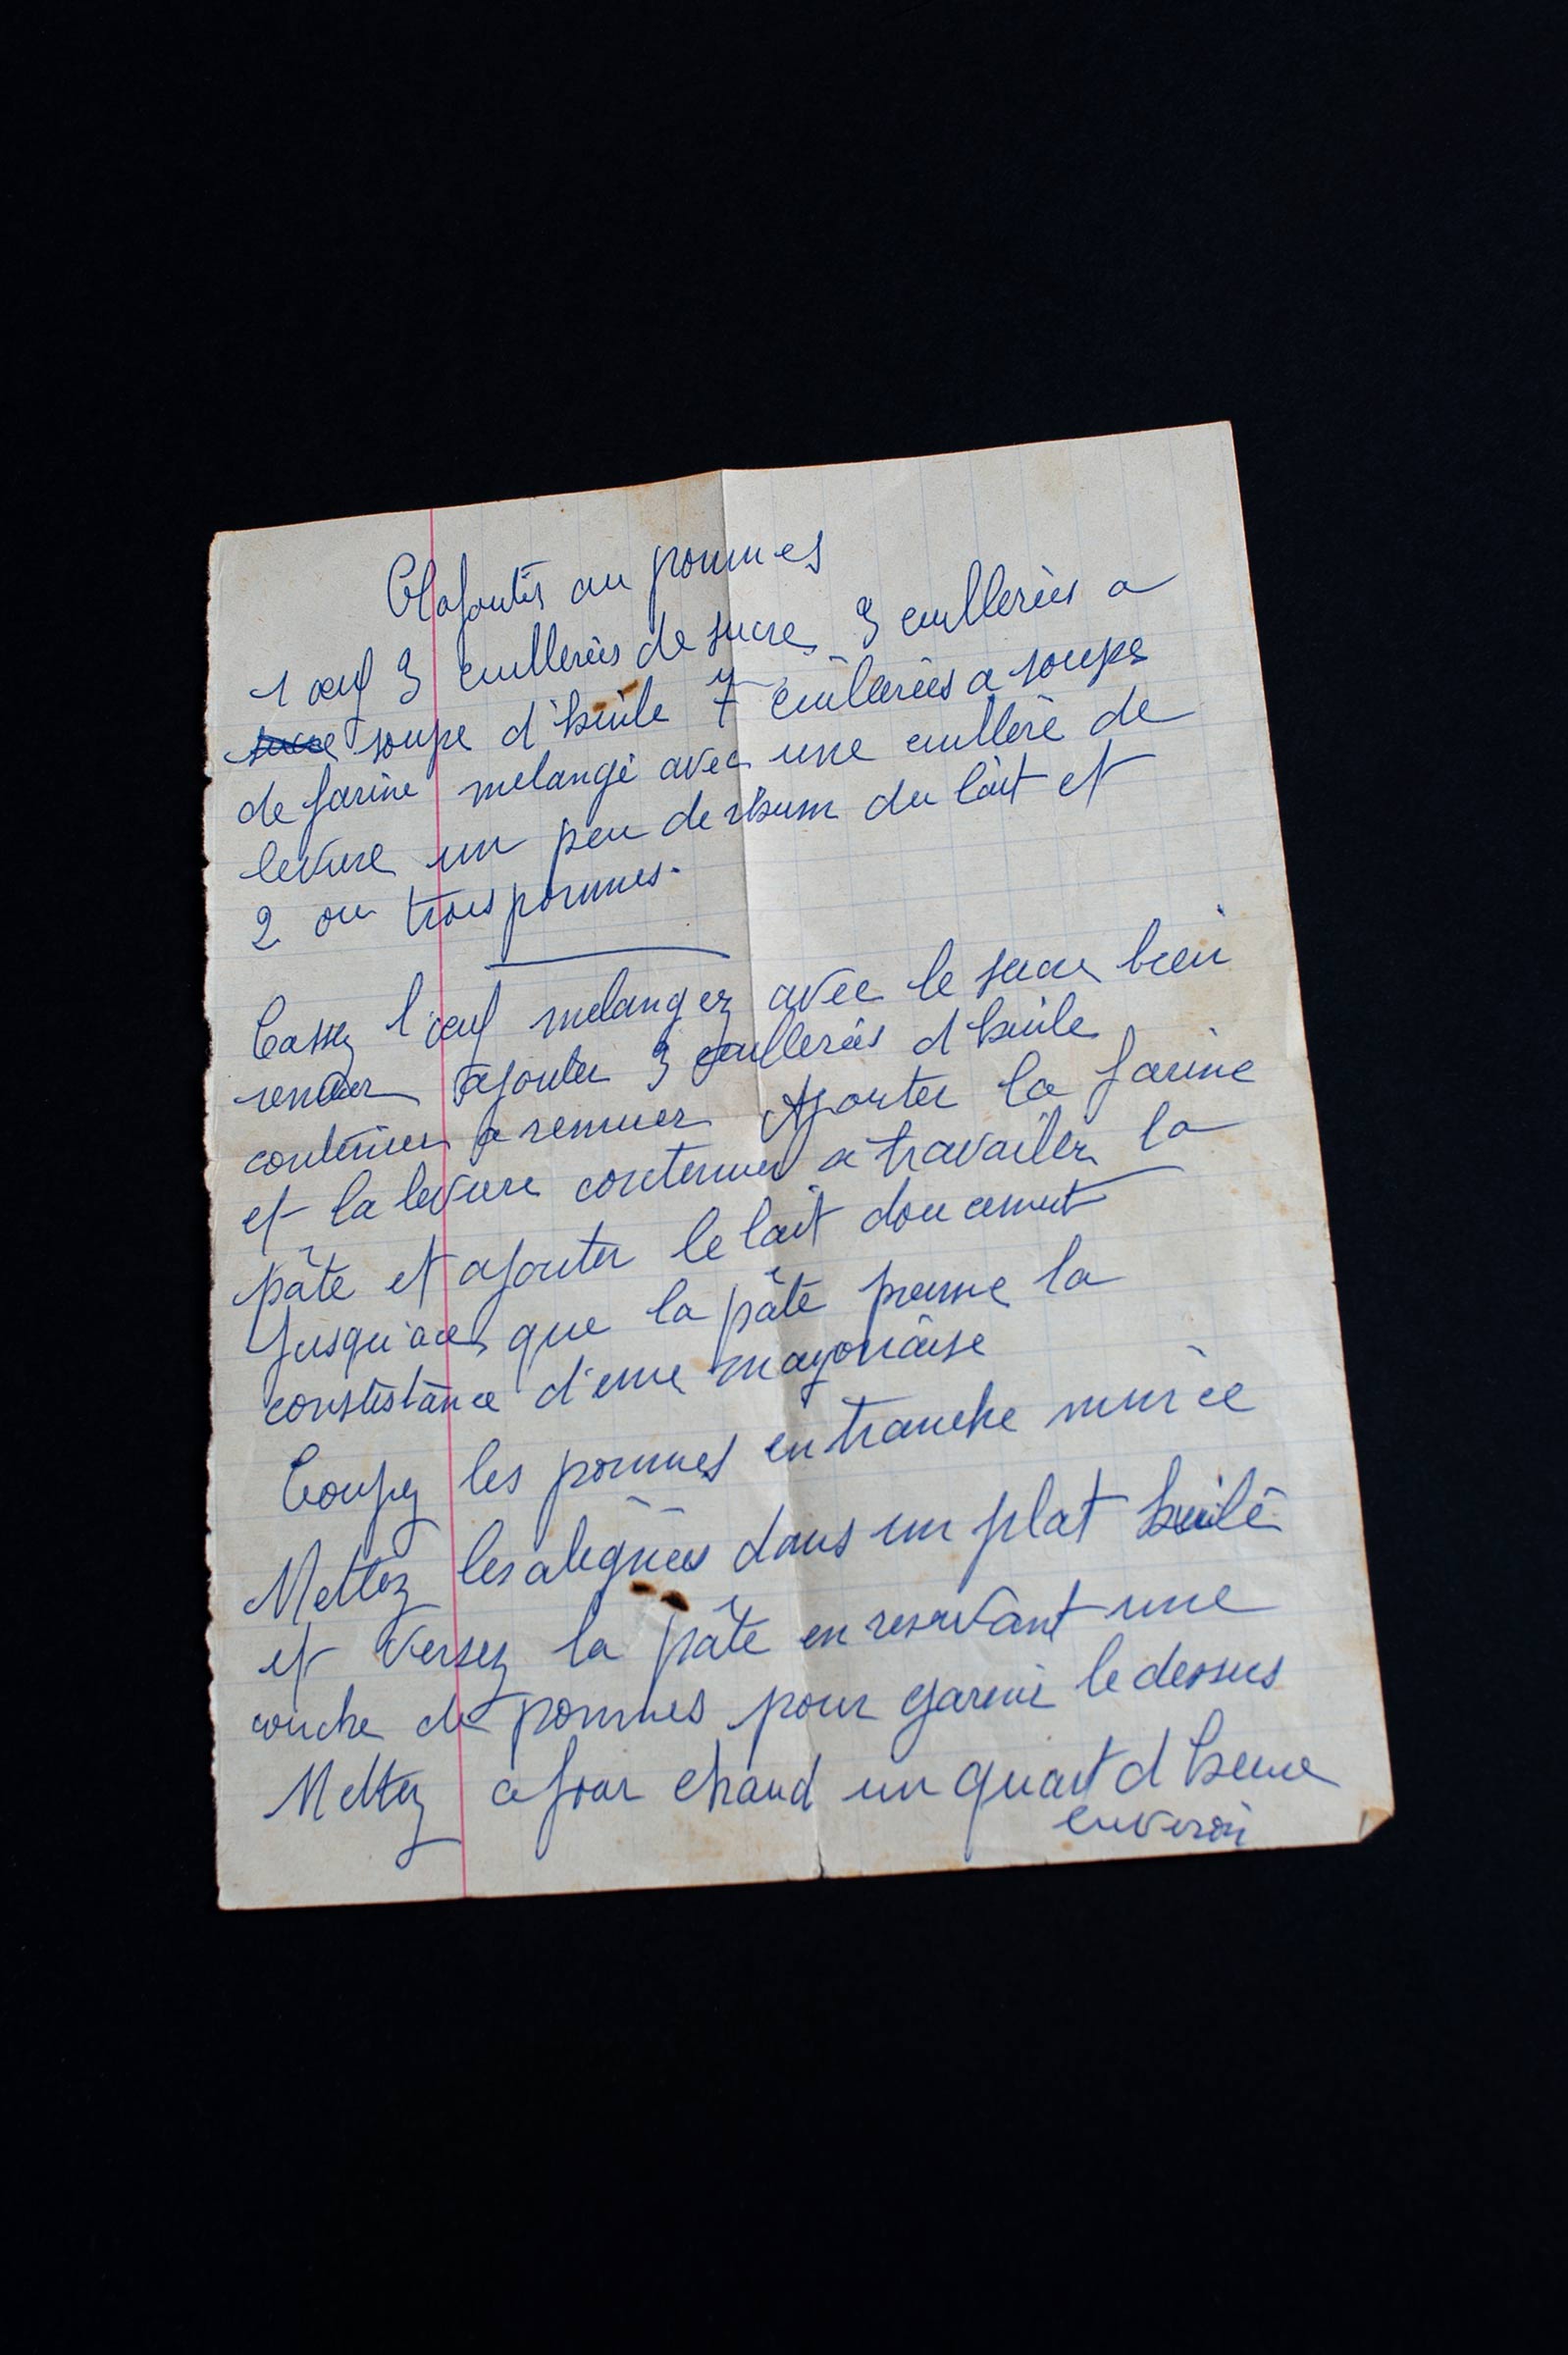 Clafoutis au pommes
1 œuf 3 cuillerèes de sucre 3 cuillerèes a
sucre soupe d'huile 7 cuillerèes a soupe
de farine melangé avec une cuillerè de
levure un peu de rhum du lait et
2 ou trois pommes.
Cassez l'œuf melangez avec le sucre bien
remuer ajouter 3 cuillerèes d huile
continuer a remuer Ajouter la farine
et la levure continuer a travailler la
pâte et ajouter le lait doucement
Jusqu'ace que la pâte prenne la
consistance d'une mayonaise
Coupez les pommes en tranche mince
Mettez les alignèes dans un plat huilé
et versez la pâte en reservant une
couche de pommes pour garnir le dessus
Mettez a four chaud un quart d heure
environ